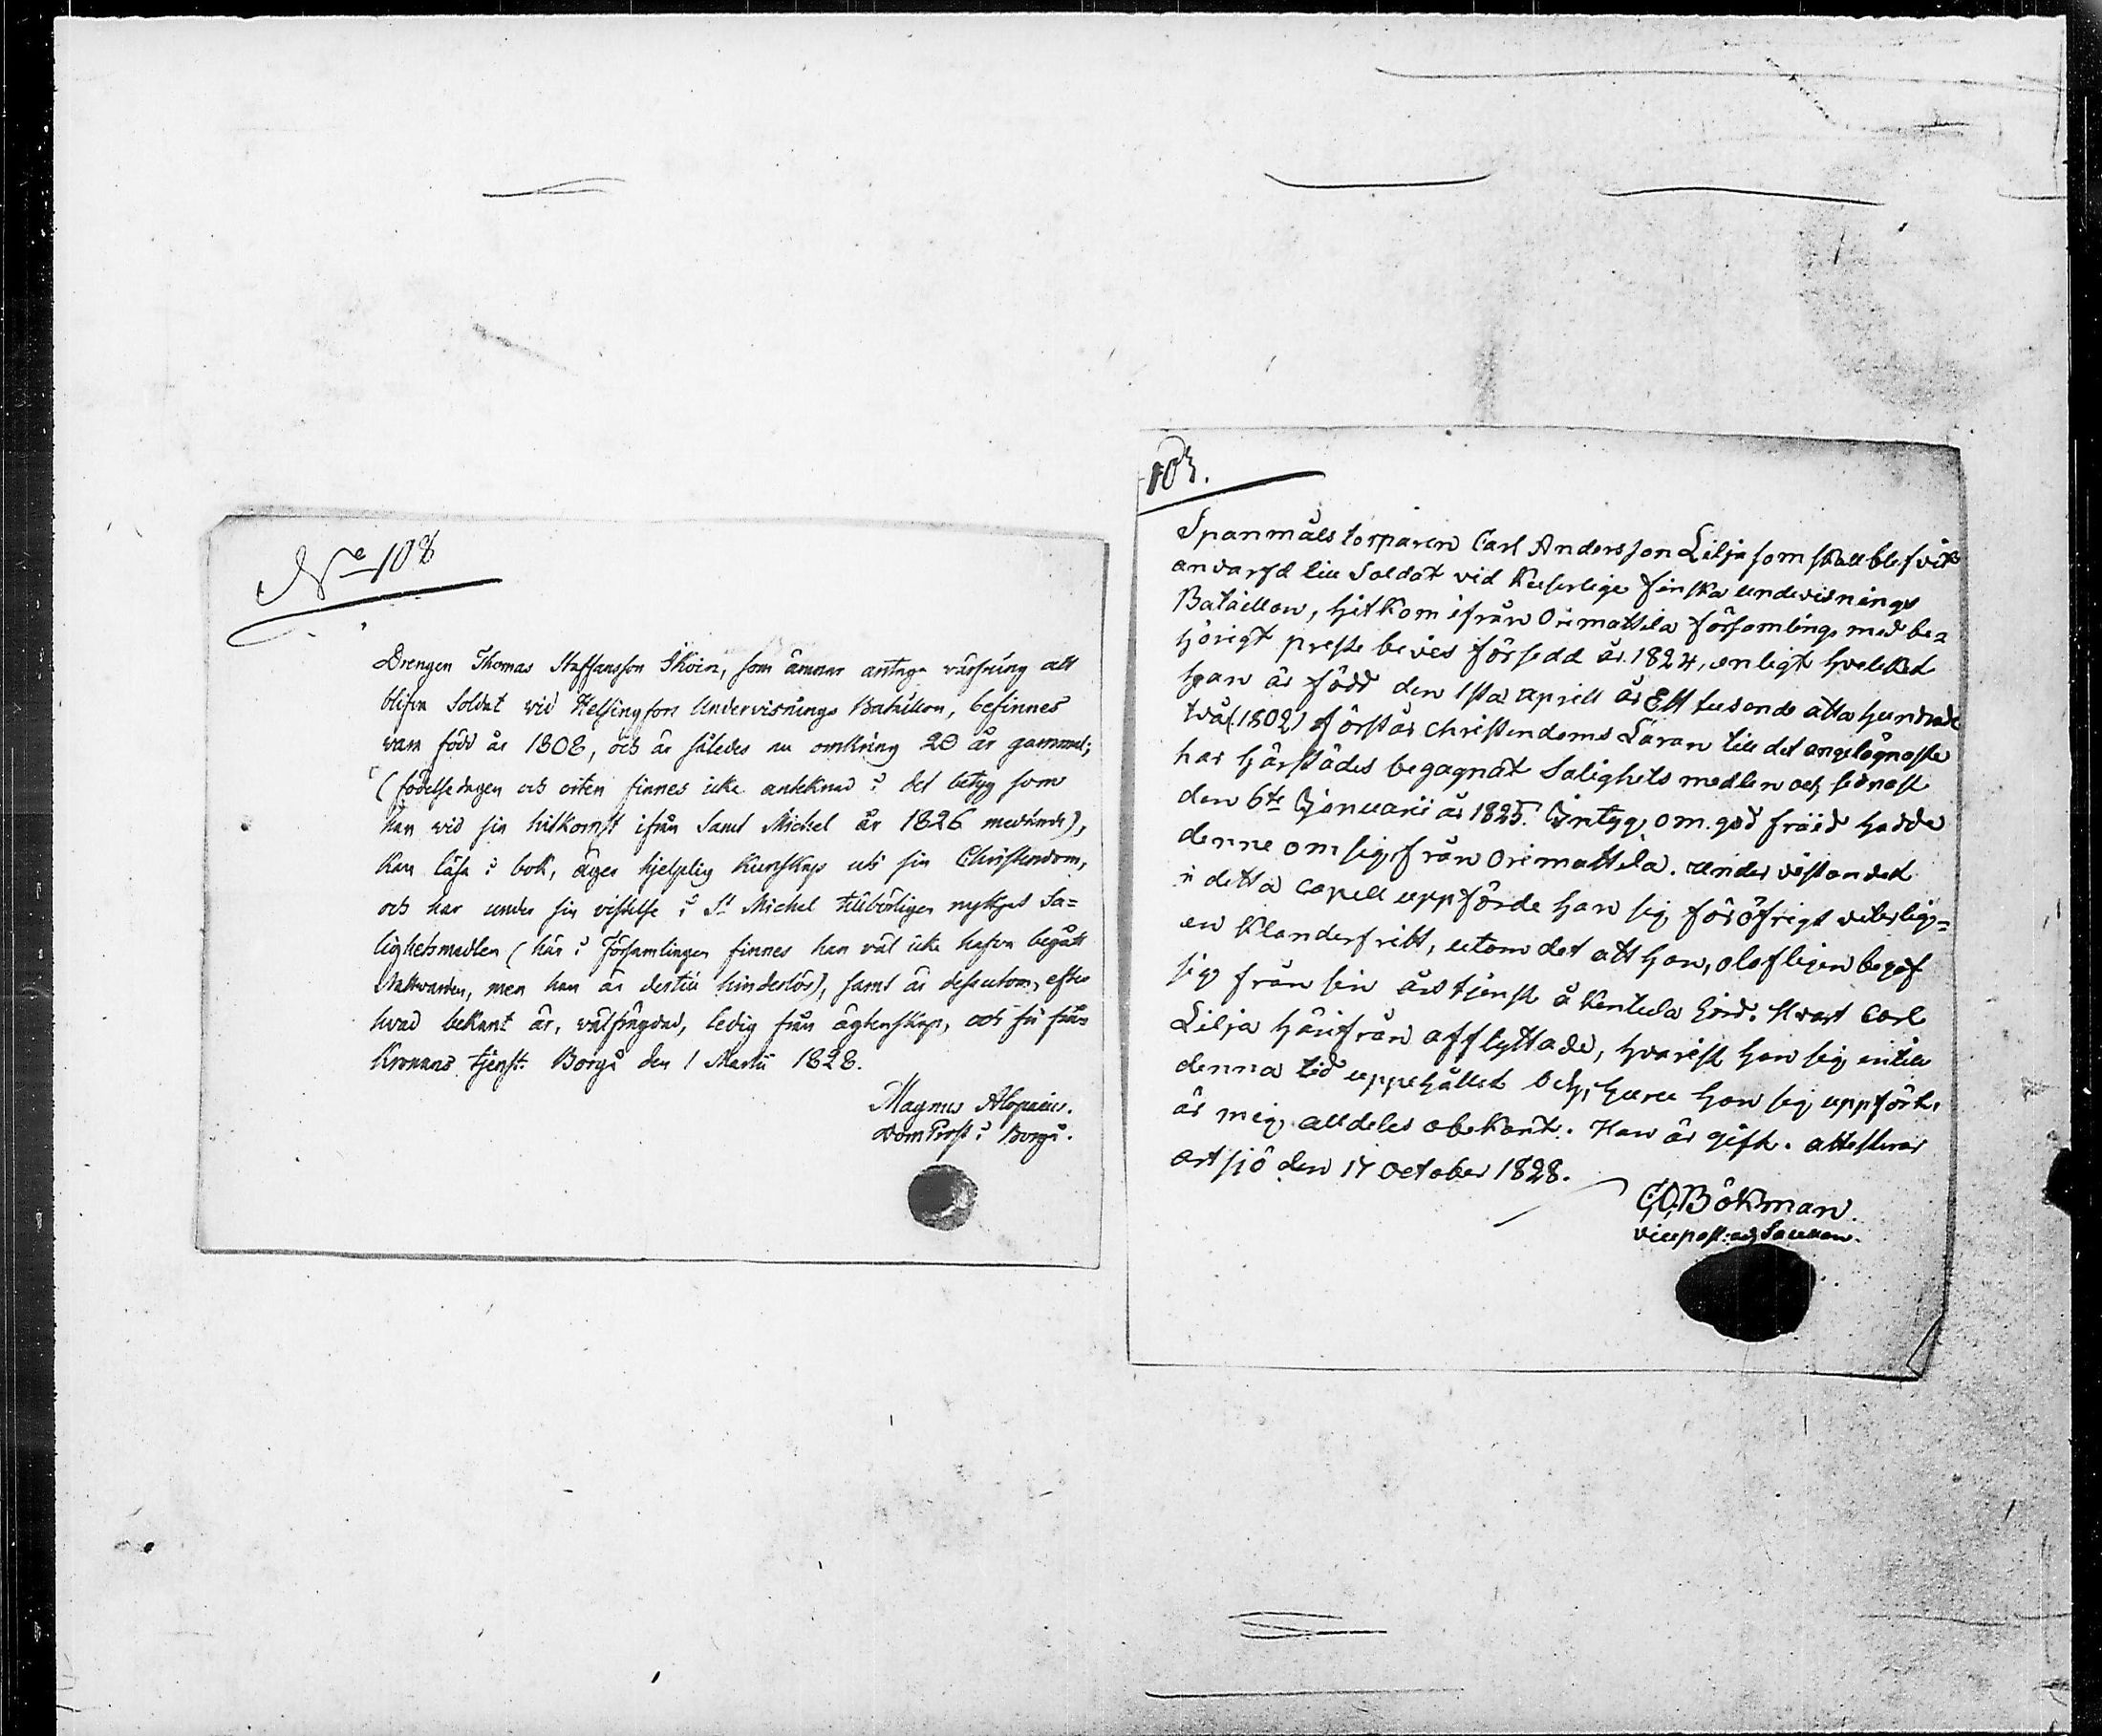 No 108
Drengen Thomas Staffansson Skoin, som ämnar antaga värfning att
blifva Soldat vid Helsingfors Undervisnings Bataillon, befinnes
vara född år 1808, och är således nu omkring 20 år gammal;
(födelsedagen och orten finnes icke antecknad i det betyg som
han vid sin hitkomst ifrån Sanct Michel år 1826 medhade),
kan läsa i bok, äger hjelplig kunskap uti sin Christendom,
och har under sin vistelse i St Michel tillbörligen nyttjat Sa=
lighetsmedlen (här i Församlingen finnes han väl icke hafva begått
Nattvarden, men han är dertill hinderlös), samt är dessutom, efter
hvad bekant är, välfrägdad, ledig från ägtenskap, och fri från
Kronans tjenst. Borgå den 1 Martii 1828.
Magnus Alopaeus.
DomProst i Borgå.
103.
Spanmåls torparen Carl Andersson Lilja som skall blifvit
anvärfd till Soldat vid Keiserlige finska undervisnings
Bataillon, hitkom ifrån Orimattila församling med be=
hörigt preste bevis försedd år 1824, enligt hvilket
han är född den 1sta aprill år Ett tusende åtta hundrade
två (1802) förstår Christendoms Läran till det angelägnaste
har härstädes begagnat Salighets medlen och sednast
den 6te Januarii år 1825. Intyg om god fräjd hade
denne om sig från Orimattila. Under vistandet
i detta Capell uppförde han sig föröfrigt veterlig=
en Klanderfritt, utom det att han, olofligen begaf
sig från sin årstjenst å Kentula Gård. Hvart Carl
Lilja härifrån afflyttade, hvarest han sig intill
denna tid uppehållet och, huru han sig uppfört,
är mig alldeles obekant. Han är gift. attesterar
Artsjö den 17 October 1828.
Böckman.